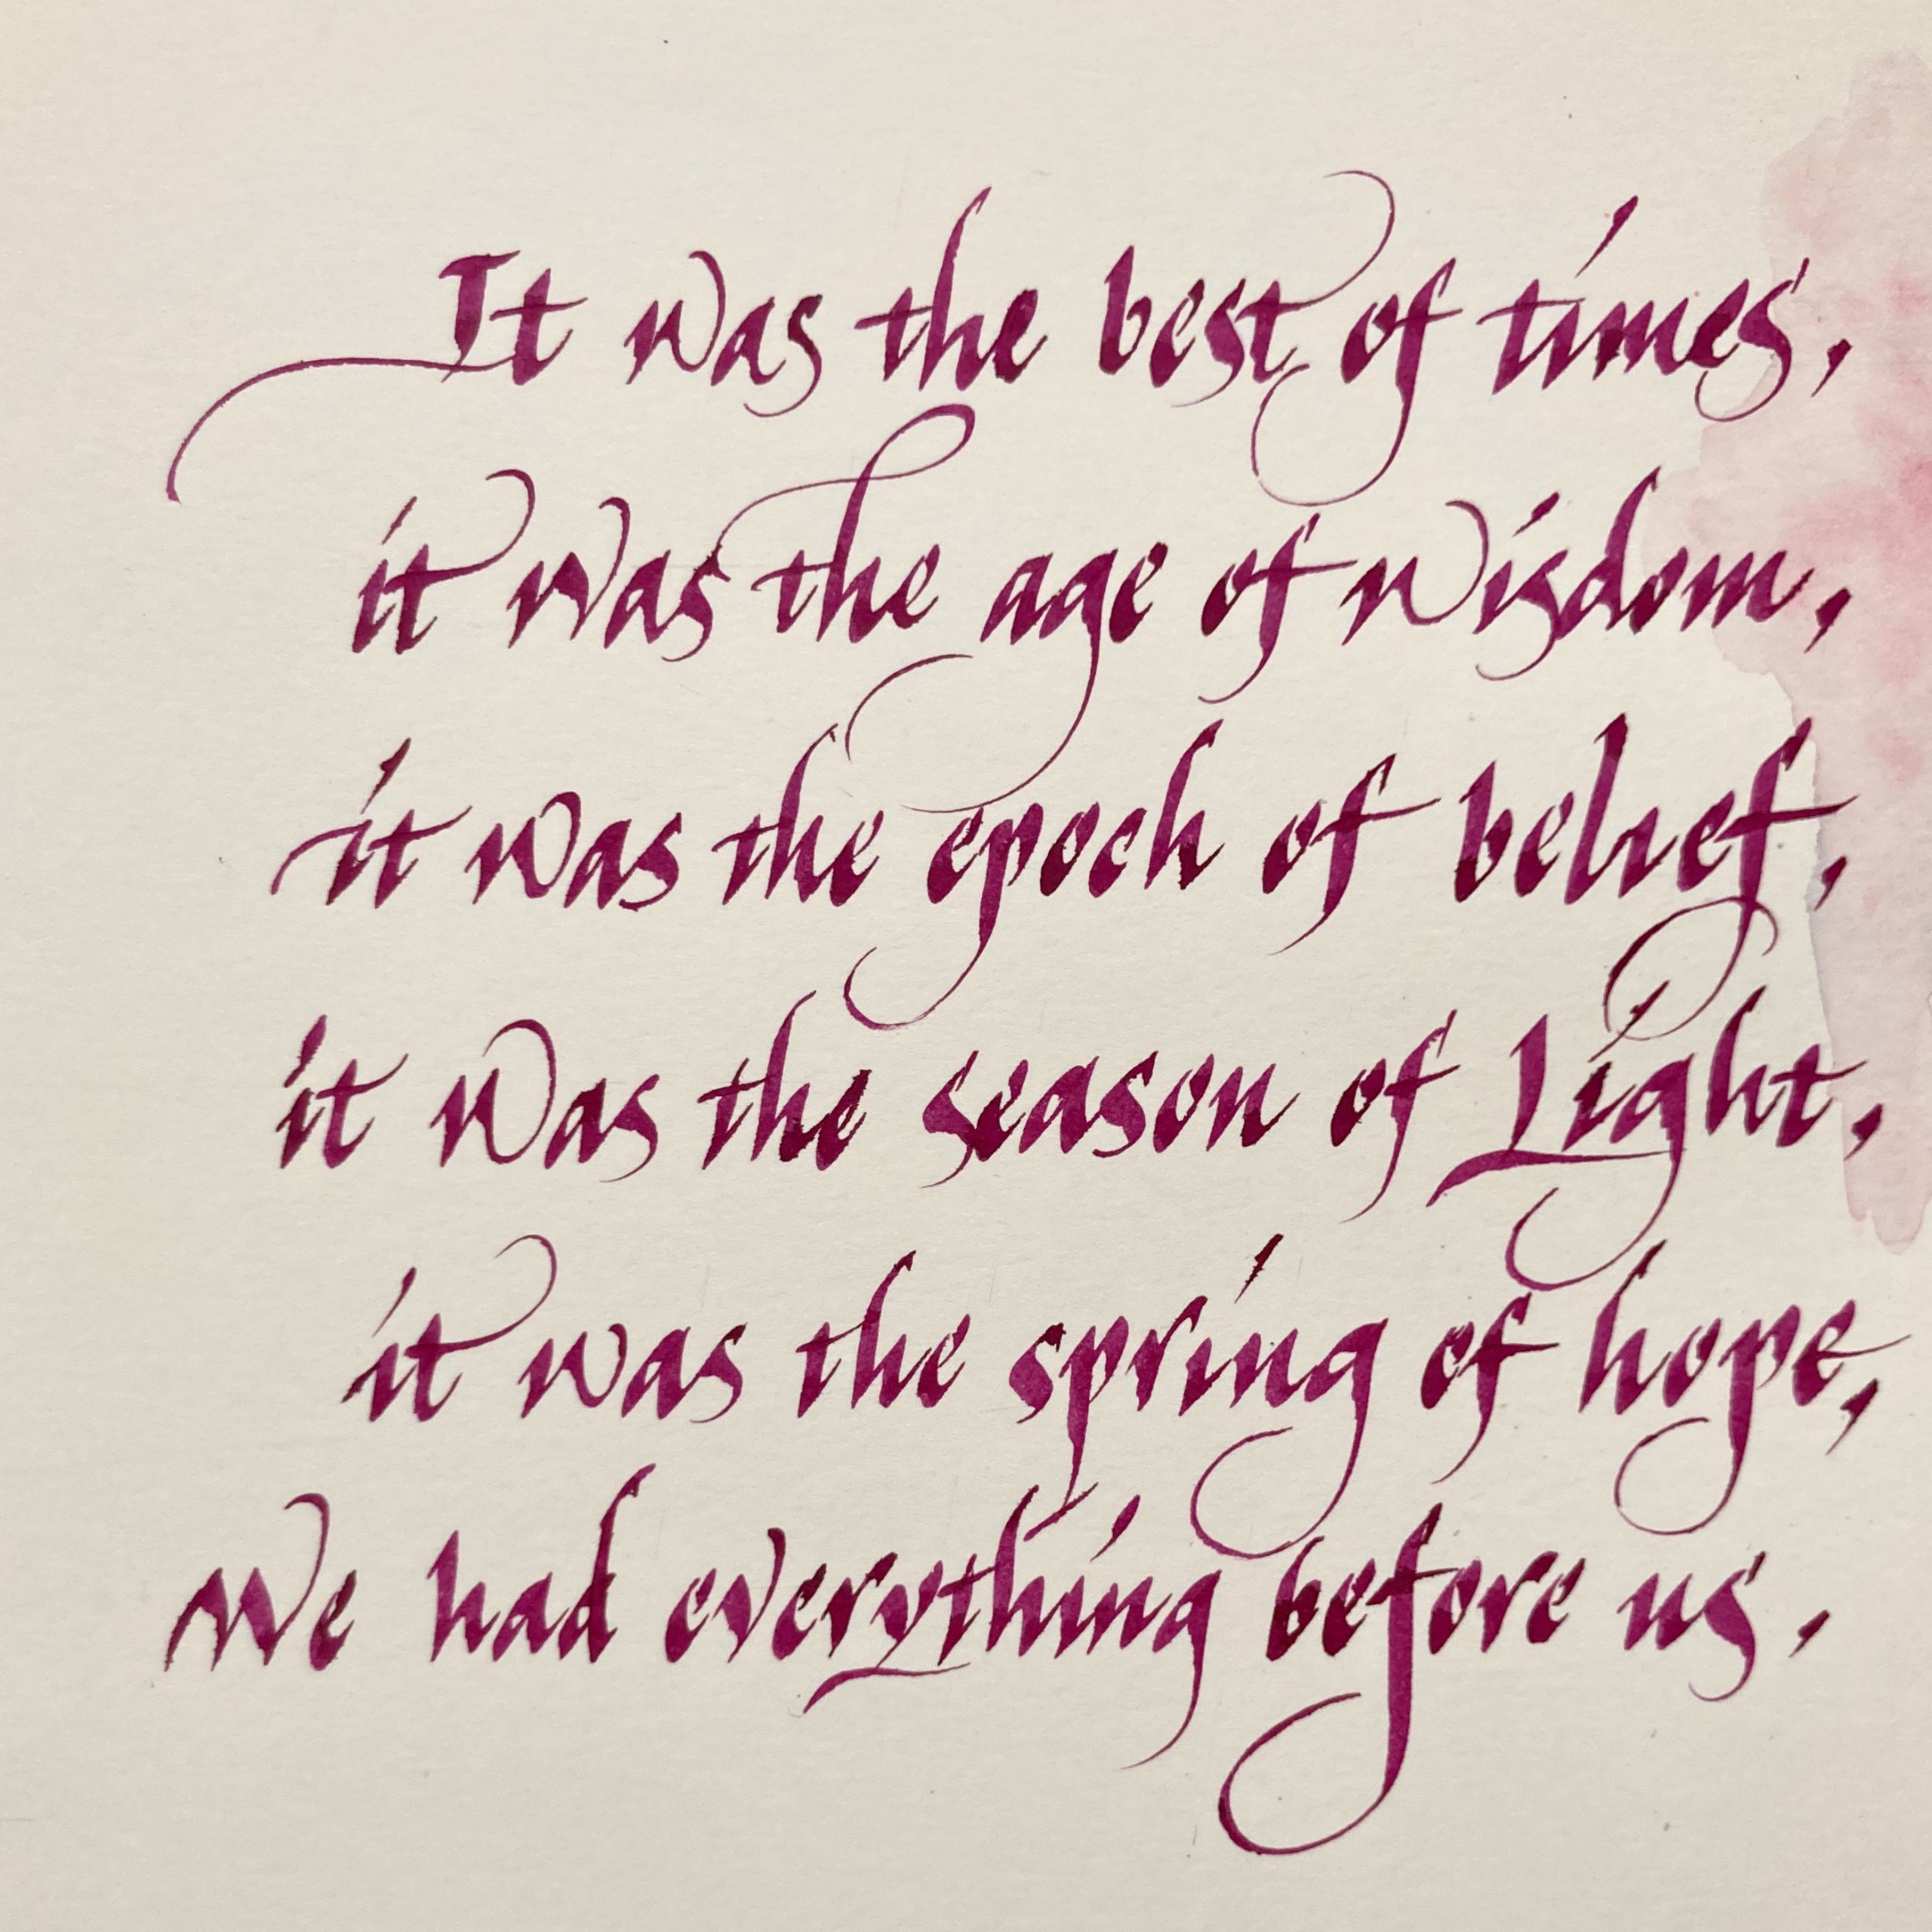 It was the best of times,
it was the age of wisdom,
it was the epoch of belief,
it was the season of Light,
it was the spring of hope,
We had everything before us,